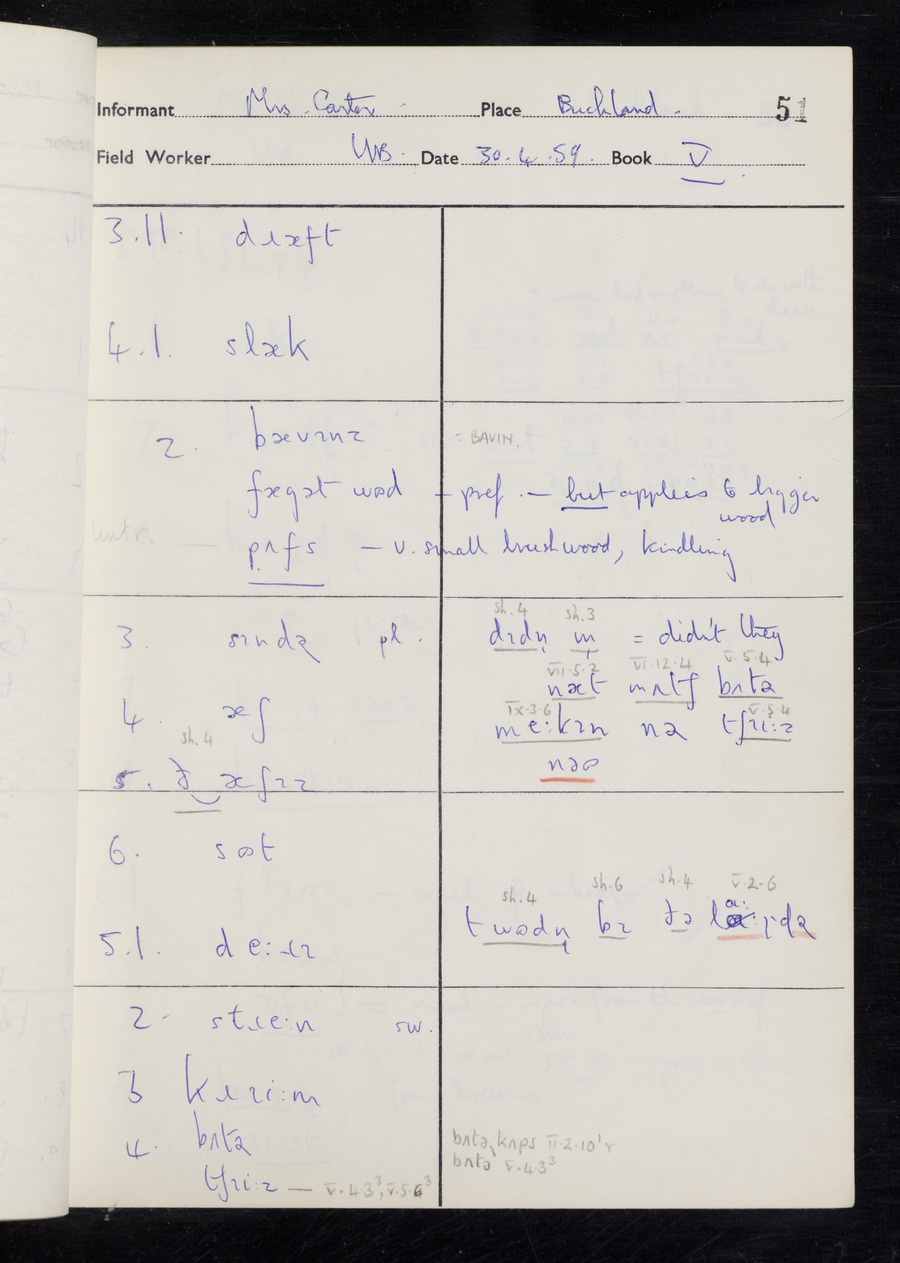 Informant Mrs Carter Place Buckland. 51
Field Worker Date 30.4.59. Book V
3.11. dɹæft
4.1. slæk
2. bævɪnz = BAVIN.
fægət wʊd + pref. — but applies to bigger
wood
pʌfs — v. small brushwood, kindling
sh.4 sh.3
3. sɪndəz pl. dɪdn̩ m̩ = didn't they
VII.5.2 VI.12.4 V.5.4
4. æʃ næt mʌtʃ bʌtə
IX.3.6 V.5.4
me:kɪn nə tʃɪi:z
sh.4
5. ð æʃɪz nəʊ
6. sʊt
sh.4 sh.6 sh.4 V.2.6
t wʊdn̩ bɪ ðə
5.1. de:ɹɪ
2. stɹe:n sw.
3 kɹɪi:m
4. bʌtə bʌtə, kʌps II.2.10¹r
bʌtə V.4.3³
tʃɪi:z — V.4.3³, V.5.6³